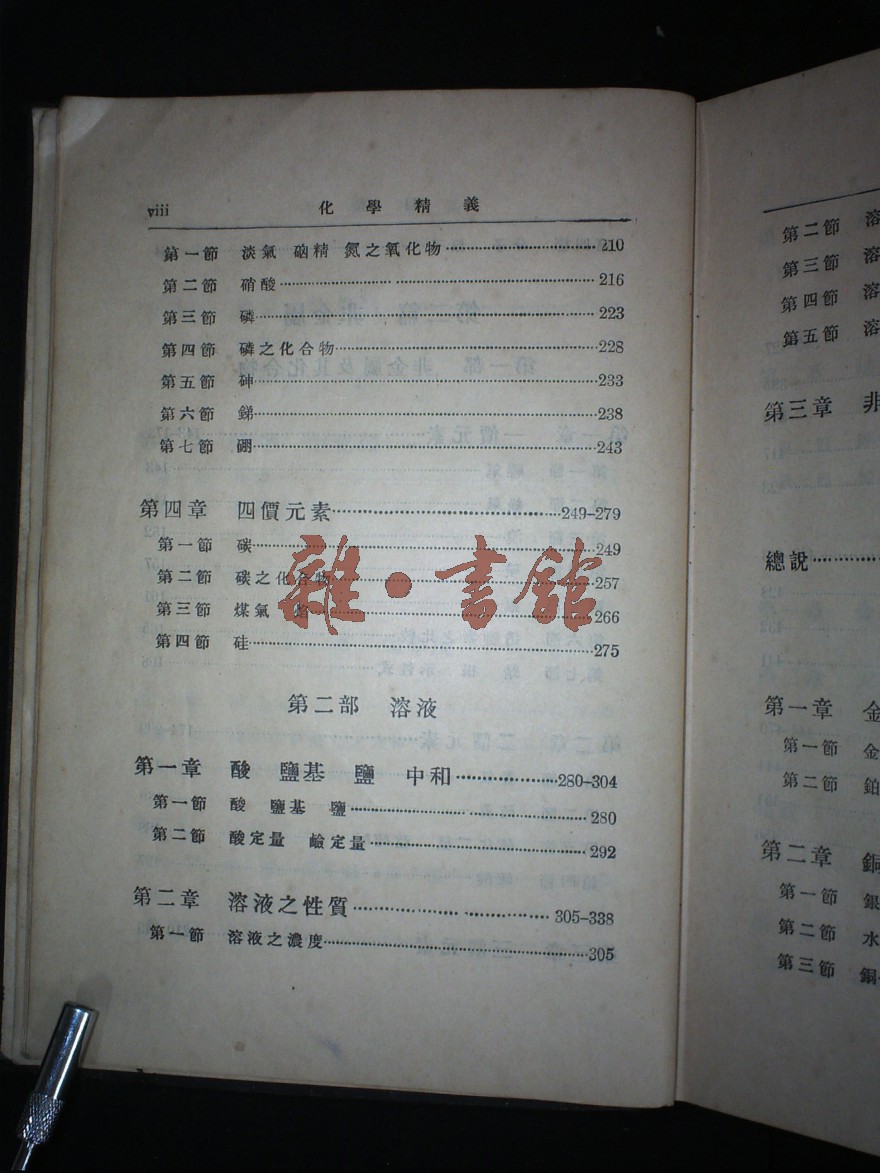 viii 化學精義
第一節 淡氣 硇精 氮之氧化物……210
第二節 硝酸……216
第三節 磷……223
第四節 磷之化合物……228
第五節 砷……233
第六節 銻……238
第七節 硼……243
第四章 四價元素……249–279
第一節 碳……249
第二節 碳之化合物……257
第三節 煤氣 焰……266
第四節 硅……275
雜·書館
第二部 溶液
第一章 酸 鹽基 鹽 中和……280–304
第一節 酸 鹽基 鹽……280
第二節 酸定量 鹼定量……292
第二章 溶液之性質……305–338
第一節 溶液之濃度……305
第二節 溶
第三節 溶
第四節 溶
第五節 溶
第三章 非
總說……
第一章 金
第一節 金
第二節 鉑
第二章 銅
第一節 銀
第二節 水
第三節 銅